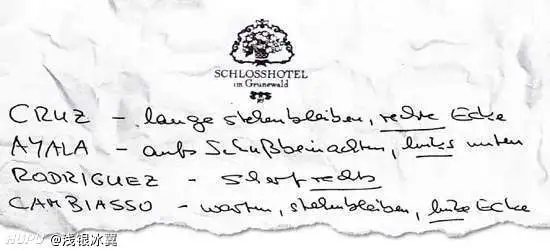 SCHLOSSHOTEL
im Grunewald
CRUZ – lange stehenbleiben, rechte Ecke
AYALA – aufs Schußbein achten, links unten
RODRIGUEZ – rechts
CAMBIASSO – warten, stehenbleiben, linke Ecke
HUPU @浅银冰翼